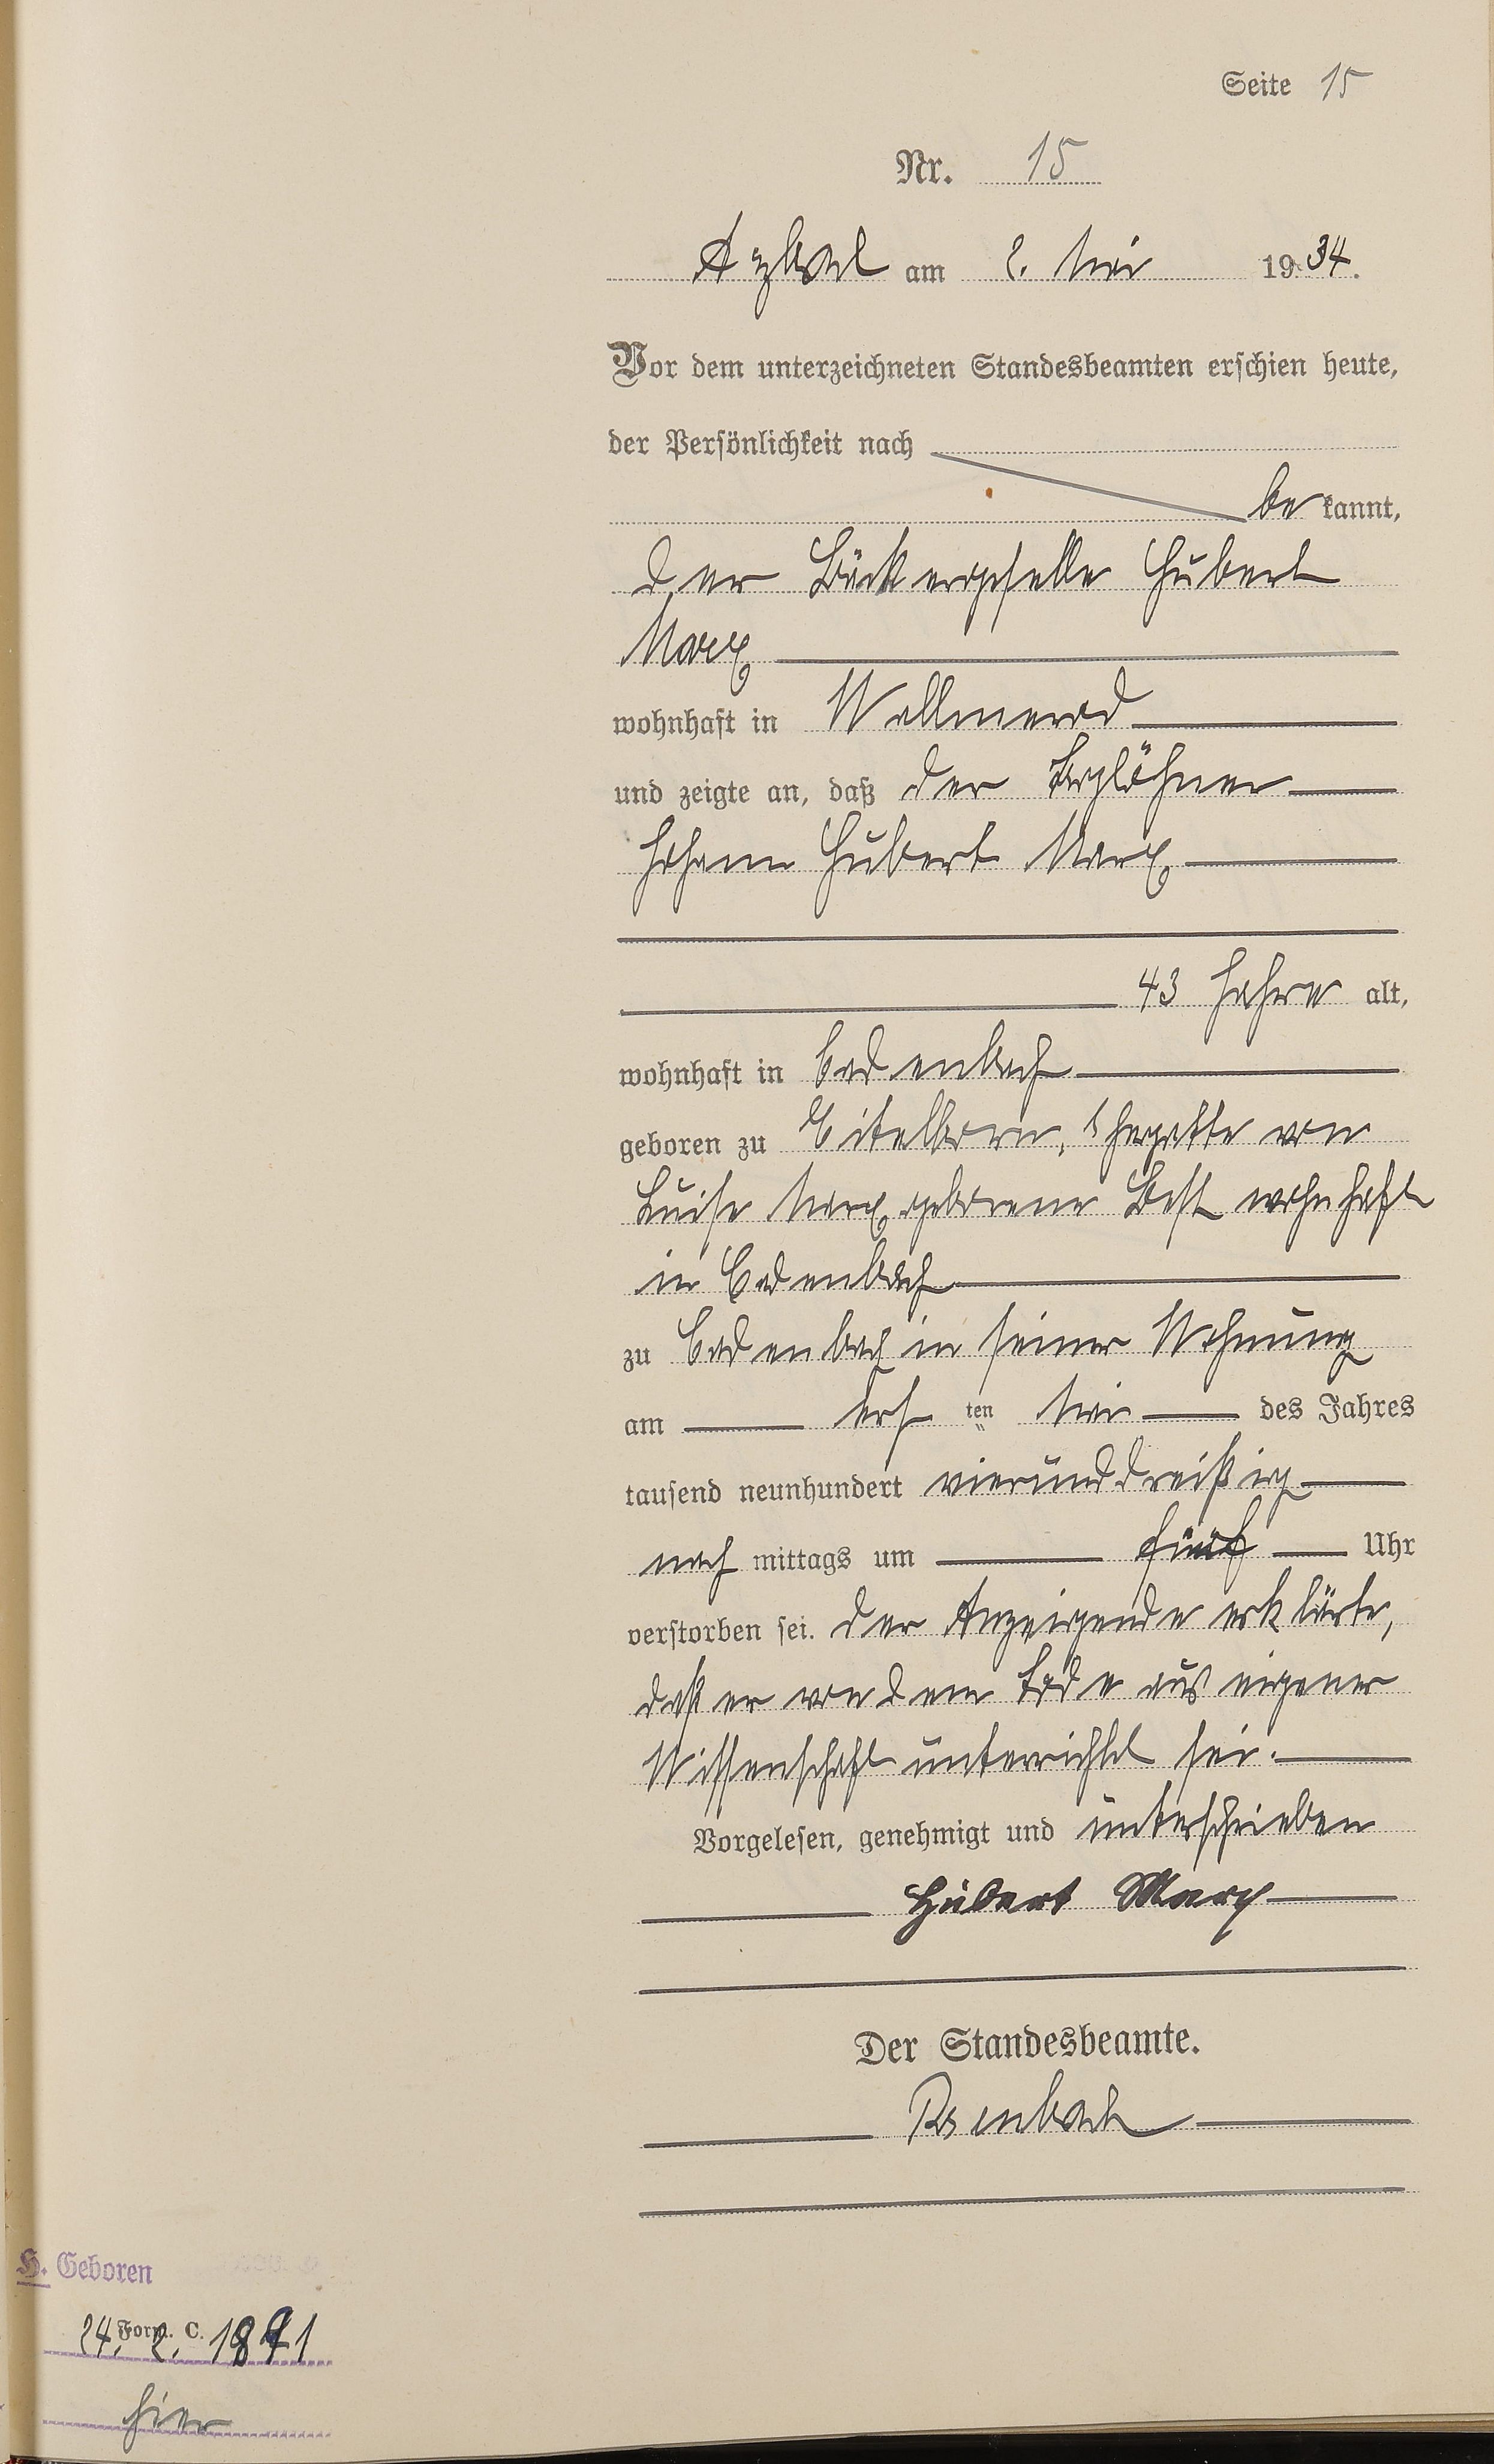 Seite 15
Nr. 15
Arzbach am 2. Mai 1934.
Vor dem unterzeichneten Standesbeamten erschien heute,
der Persönlichkeit nach
be kannt,
der Bäckergeselle Hubert
Marx
wohnhaft in Wallmerod
und zeigte an, daß der Taglöhner
Johann Hubert Marx
43 Jahre alt,
wohnhaft in Cadenbach
geboren zu Eitelborn, Ehegatte von
Luise Marx geborene Best wohnhaft
in Cadenbach
zu Cadenbach in seiner Wohnung
am ersten Mai des Jahres
tausend neunhundert vierunddreißig
nach mittags um fünf Uhr
verstorben sei. Der Anzeigende erklärte,
daß er von dem Tode aus eigener
Wissenschaft unterrichtet sei.
Vorgelesen, genehmigt und unterschrieben
Hubert Marx
Der Standesbeamte.
H. Geboren
Form. C.
24. 2. 1891
hier